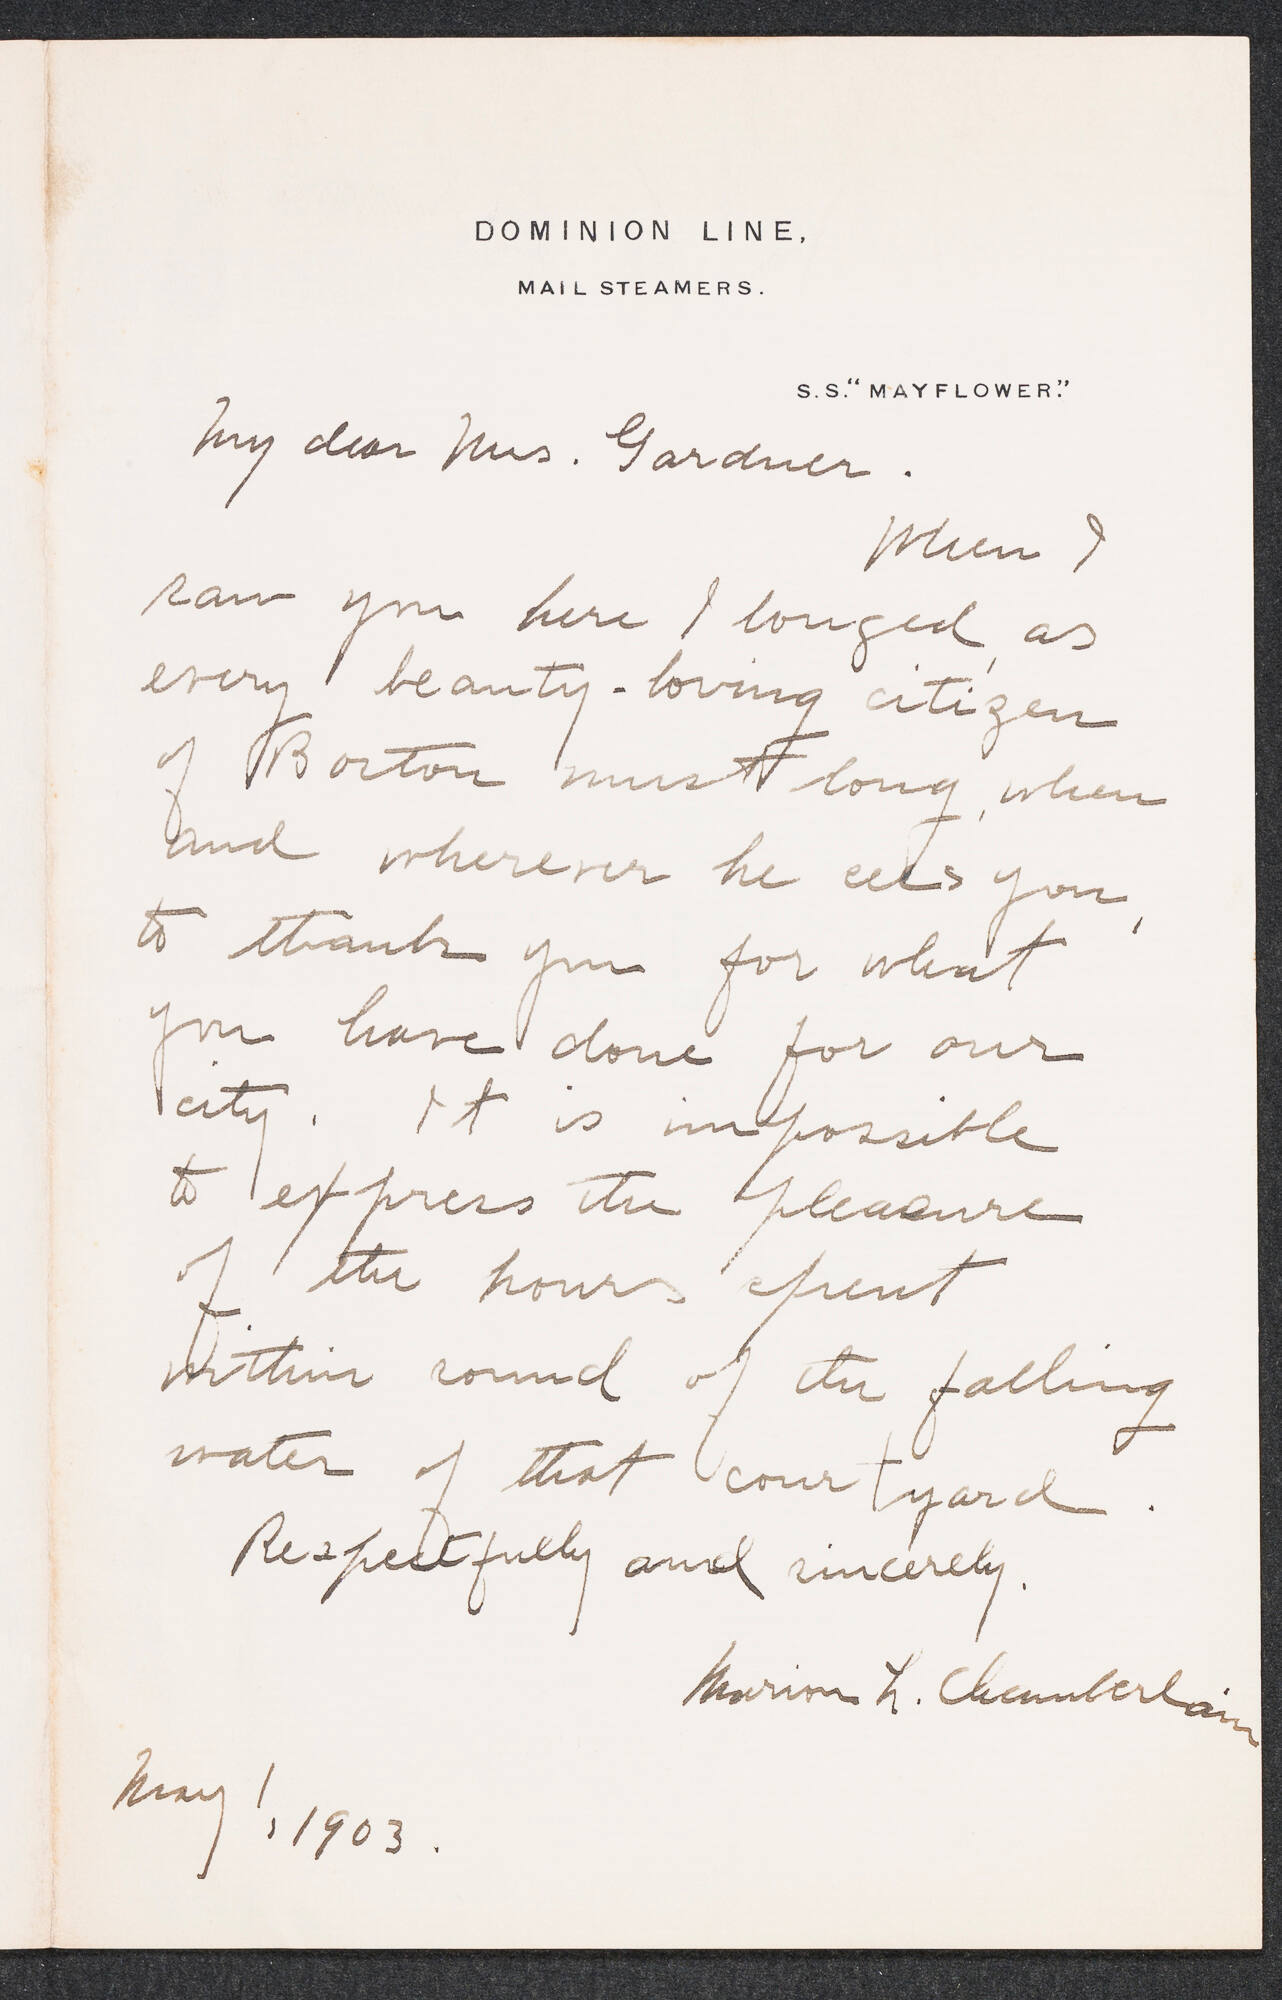 DOMINION LINE,
MAIL STEAMERS.
S.S. "MAYFLOWER."
My dear Mrs. Gardner.
When I
saw you here I longed, as
every beauty-loving citizen
of Boston must long, when
and wherever he sees you,
to thank you for what
you have done for our
city. It is impossible
to express the pleasure
of the hours spent
within sound of the falling
water of that courtyard.
Respectfully and sincerely,
Marion L. Chamberlain
May 1, 1903.